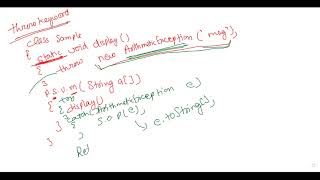 throw keyword
class Sample
{ static void display()
{ throw new ArithmeticException("msg");
}
p.s.v.m(String a[])
{ try
{ display()
} catch(ArithmeticException e)
{ S.o.p(e);
} ↳ e.toString();
}
Ret